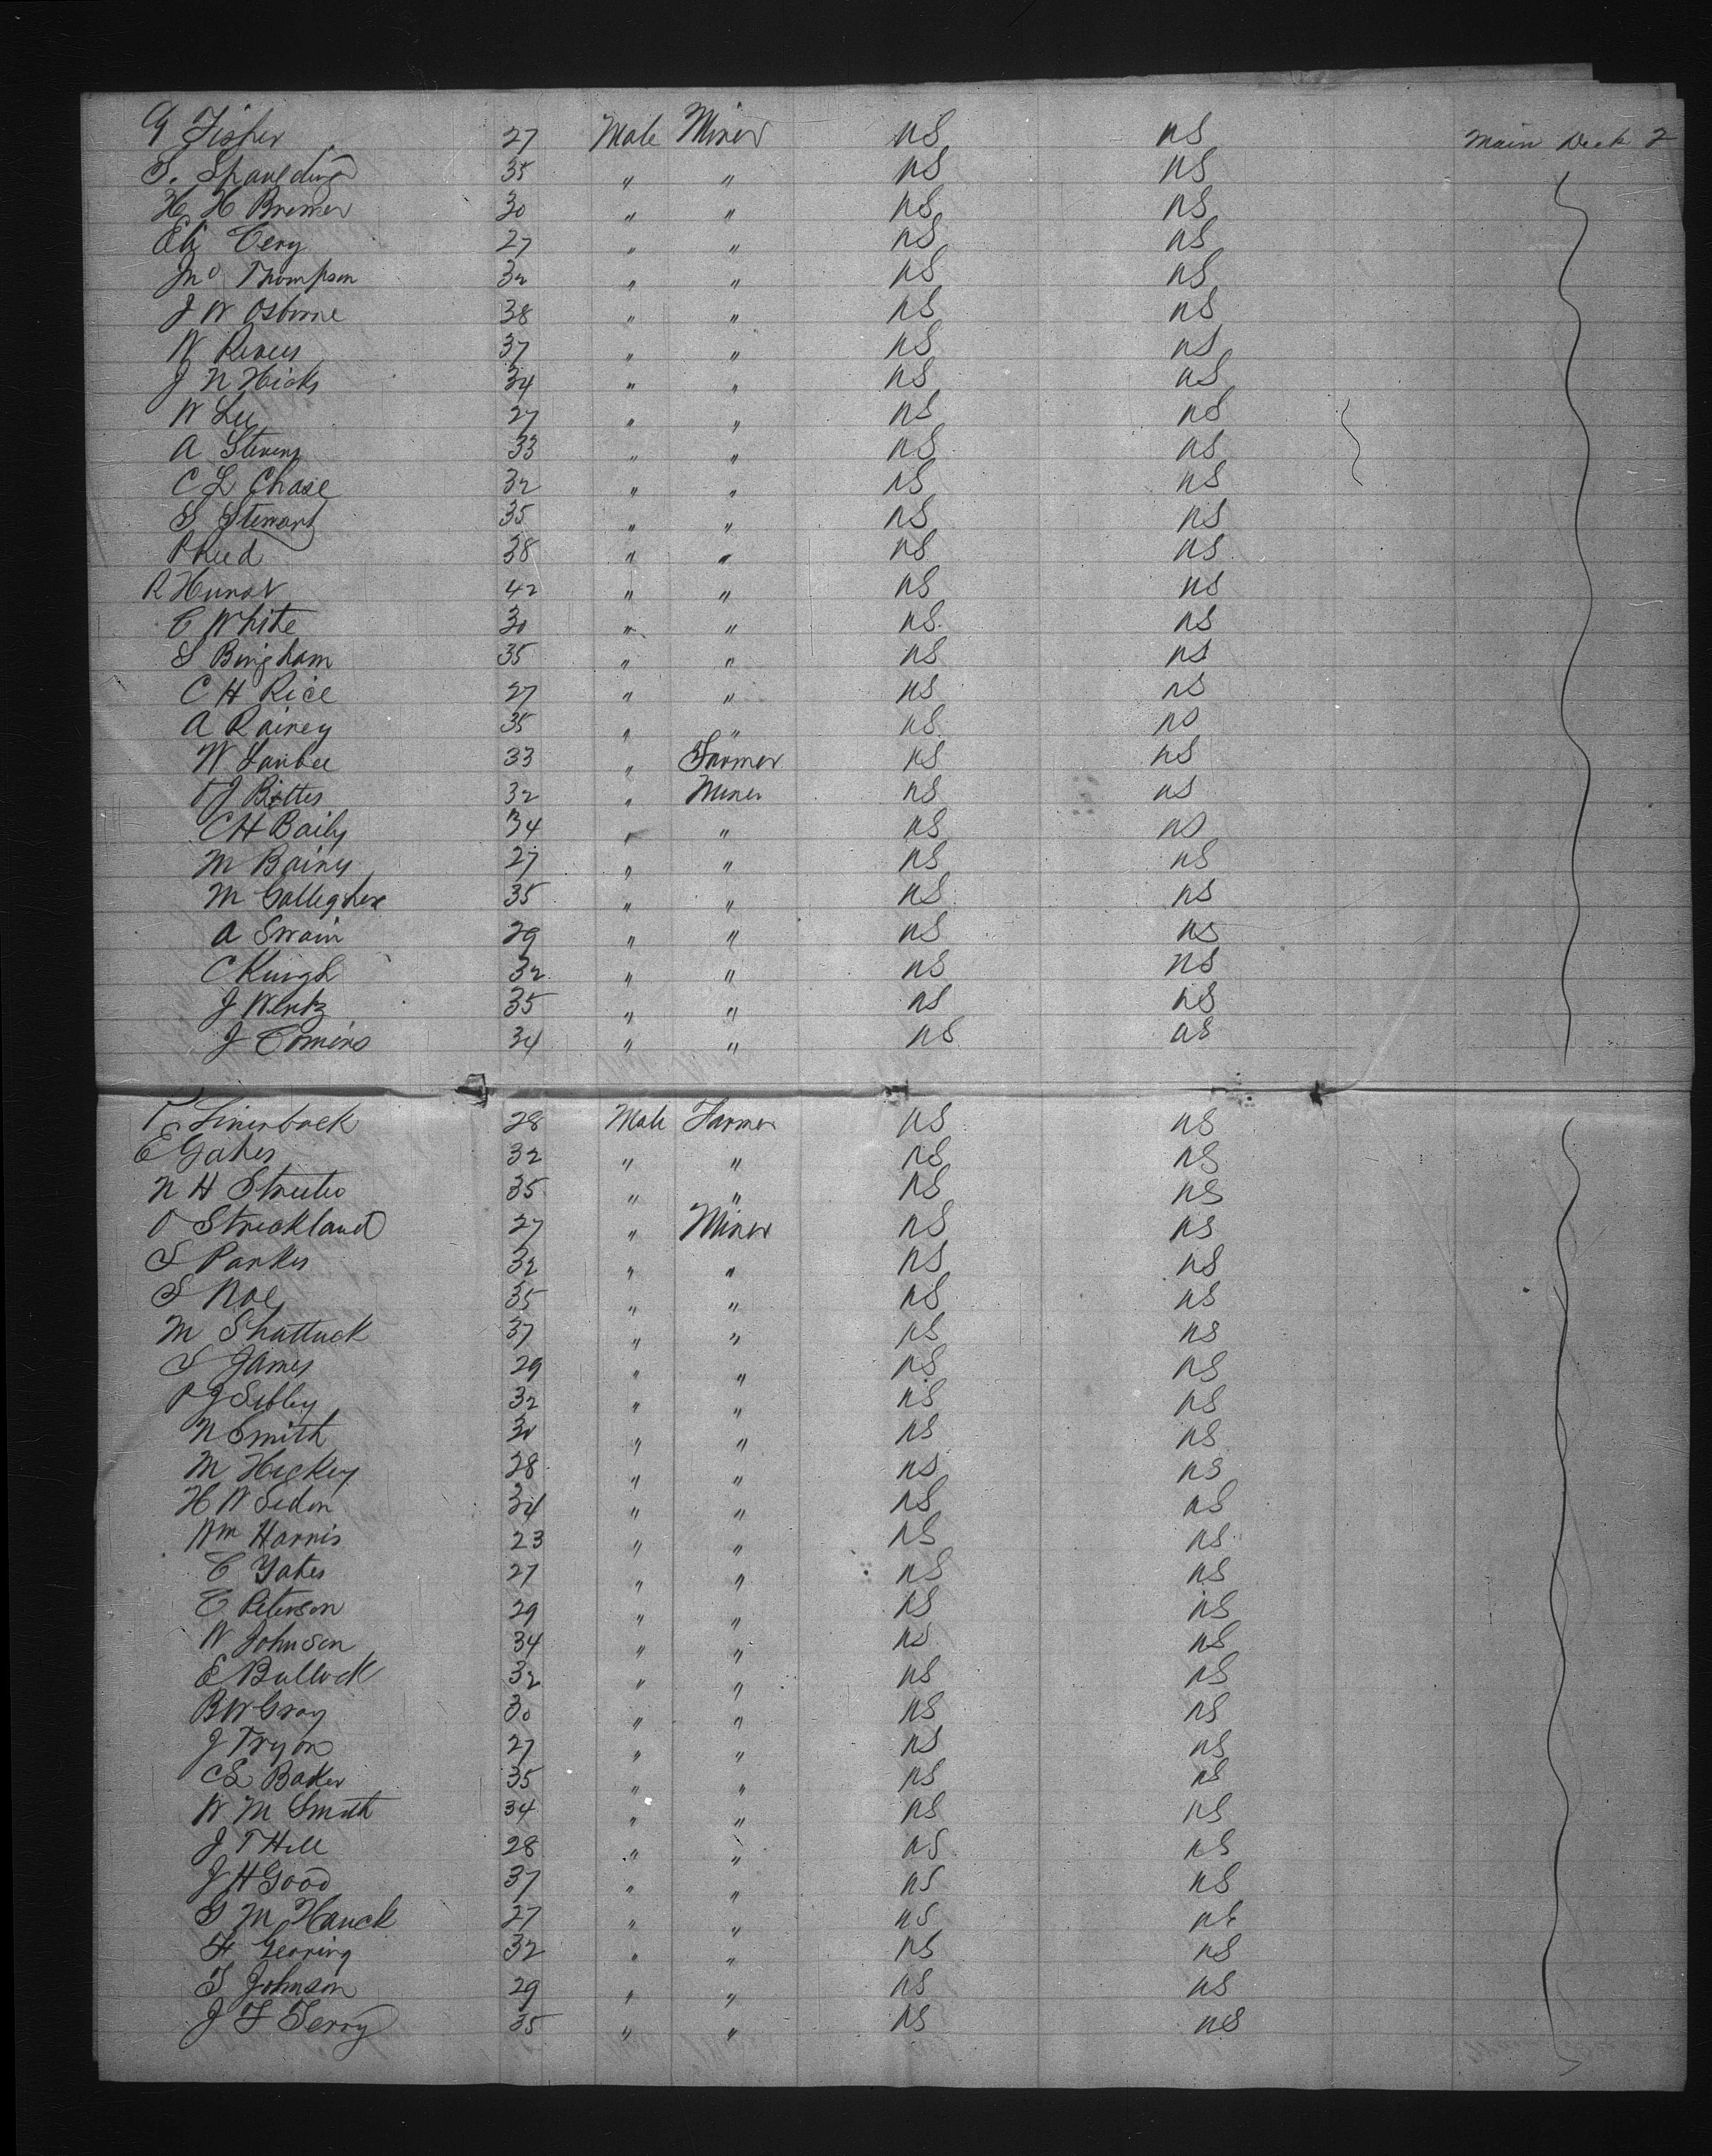 G Fisher 27 Male Miner US US Main Deck 2
S. Spaulding 35 " " US US
H H Bremer 30 " " US US
Eli 27 " " US US
Jno Thompson 32 " " US US
J W Osborne 38 " " US US
W 37 " " US US
J N Hicks 34 " " US US
W Lee 27 " " US US
A Stevens 33 " " US US
C L Chase 32 " " US US
S Stewart 35 " " US US
P Reed 38 " " US US
R Hurst 42 " " US US
C White 30 " " US US
S Bingham 35 " " US US
C H Rice 27 " " US US
A Rainey 35 " " US US
W Larrbee 33 " Farmer US US
J 32 " Miner US US
C H Baily 34 " " US US
M 27 " " US US
M Galleghere 35 " " US US
A Swain 29 " " US US
C 32 " " US US
J Wentz 35 " " US US
J Comins 34 " " US US
Linerback 28 Male Farmer US US
E Gates 32 " " US US
N H Streeter 35 " " US US
O Strickland 27 " Miner US US
S Parker 32 " " US US
S Noe 35 " " US US
M Shattuck 37 " " US US
S James 29 " " US US
P J Sibley 32 " " US US
N Smith 30 " " US US
M Hickey 28 " " US US
H W Seden 34 " " US US
Wm Harris 23 " " US US
C Yates 27 " " US US
C Peterson 29 " " US US
W Johnson 34 " " US US
E Bullock 32 " " US US
B W Gray 30 " " US US
J Tryon 27 " " US US
C S Baker 35 " " US US
W M Smith 34 " " US US
J T Hill 28 " " US US
J H Good 37 " " US US
G M Hauck 27 " " US US
H Gearing 32 " " US US
T Johnson 29 " " US US
J F Terry 35 " " US US